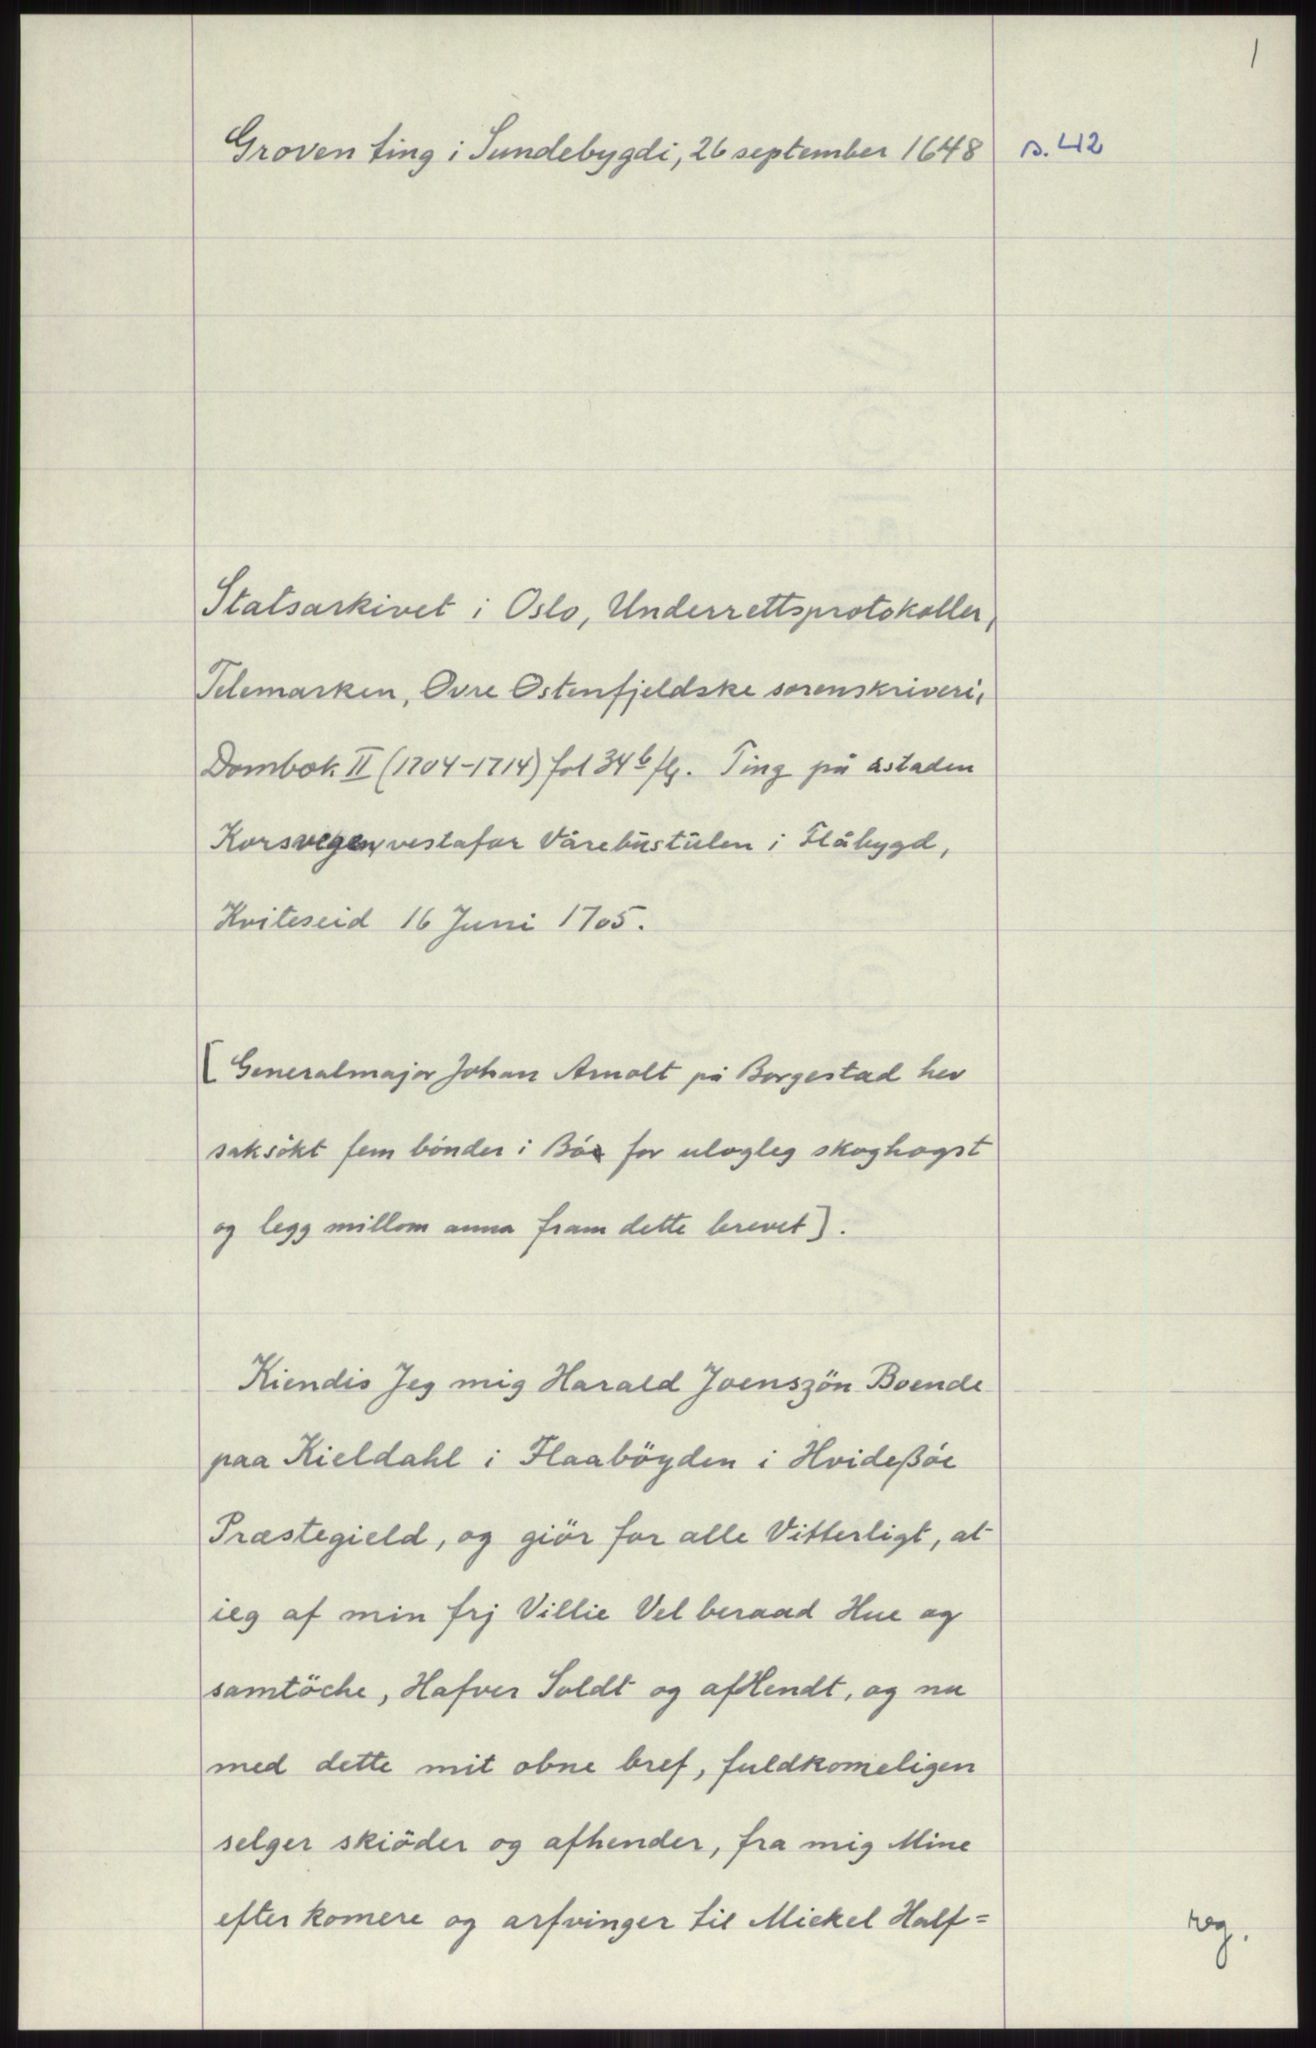 1
Groven ting i Sundebygdi, 26 september 1648 s. 42
Statsarkivet i Oslo, Underrettsprotokoller,
Telemarken, Øvre Østenfjeldske sorenskriveri,
Dombok II (1704-1714) fol 34b flg. Ting på åstaden
Korsvegen vestafor Vårebústúlen i Flåbygd,
Kviteseid 16 Juni 1705.
[Generalmajor Johan Arnolt på Borgestad hev
saksókt fem bónder i Bó for ulogleg skoghogst
og legg millom anna fram dette brevet].
Kiendis Jeg mig Harald Joenszön Boende
paa Kieldahl i Flaaböyden i Hvideßöe
Præstegield, og giör for alle Vitterligt, at
ieg af min frj Villie Vel beraad Hue og
samtöche, Hafver Soldt og afHendt, og nu
med dette mit obne bref, fuldkomeligen
selger skiöder og afhender, fra mig Mine
efterkomere og arfvinger til Mickel Half=
reg.